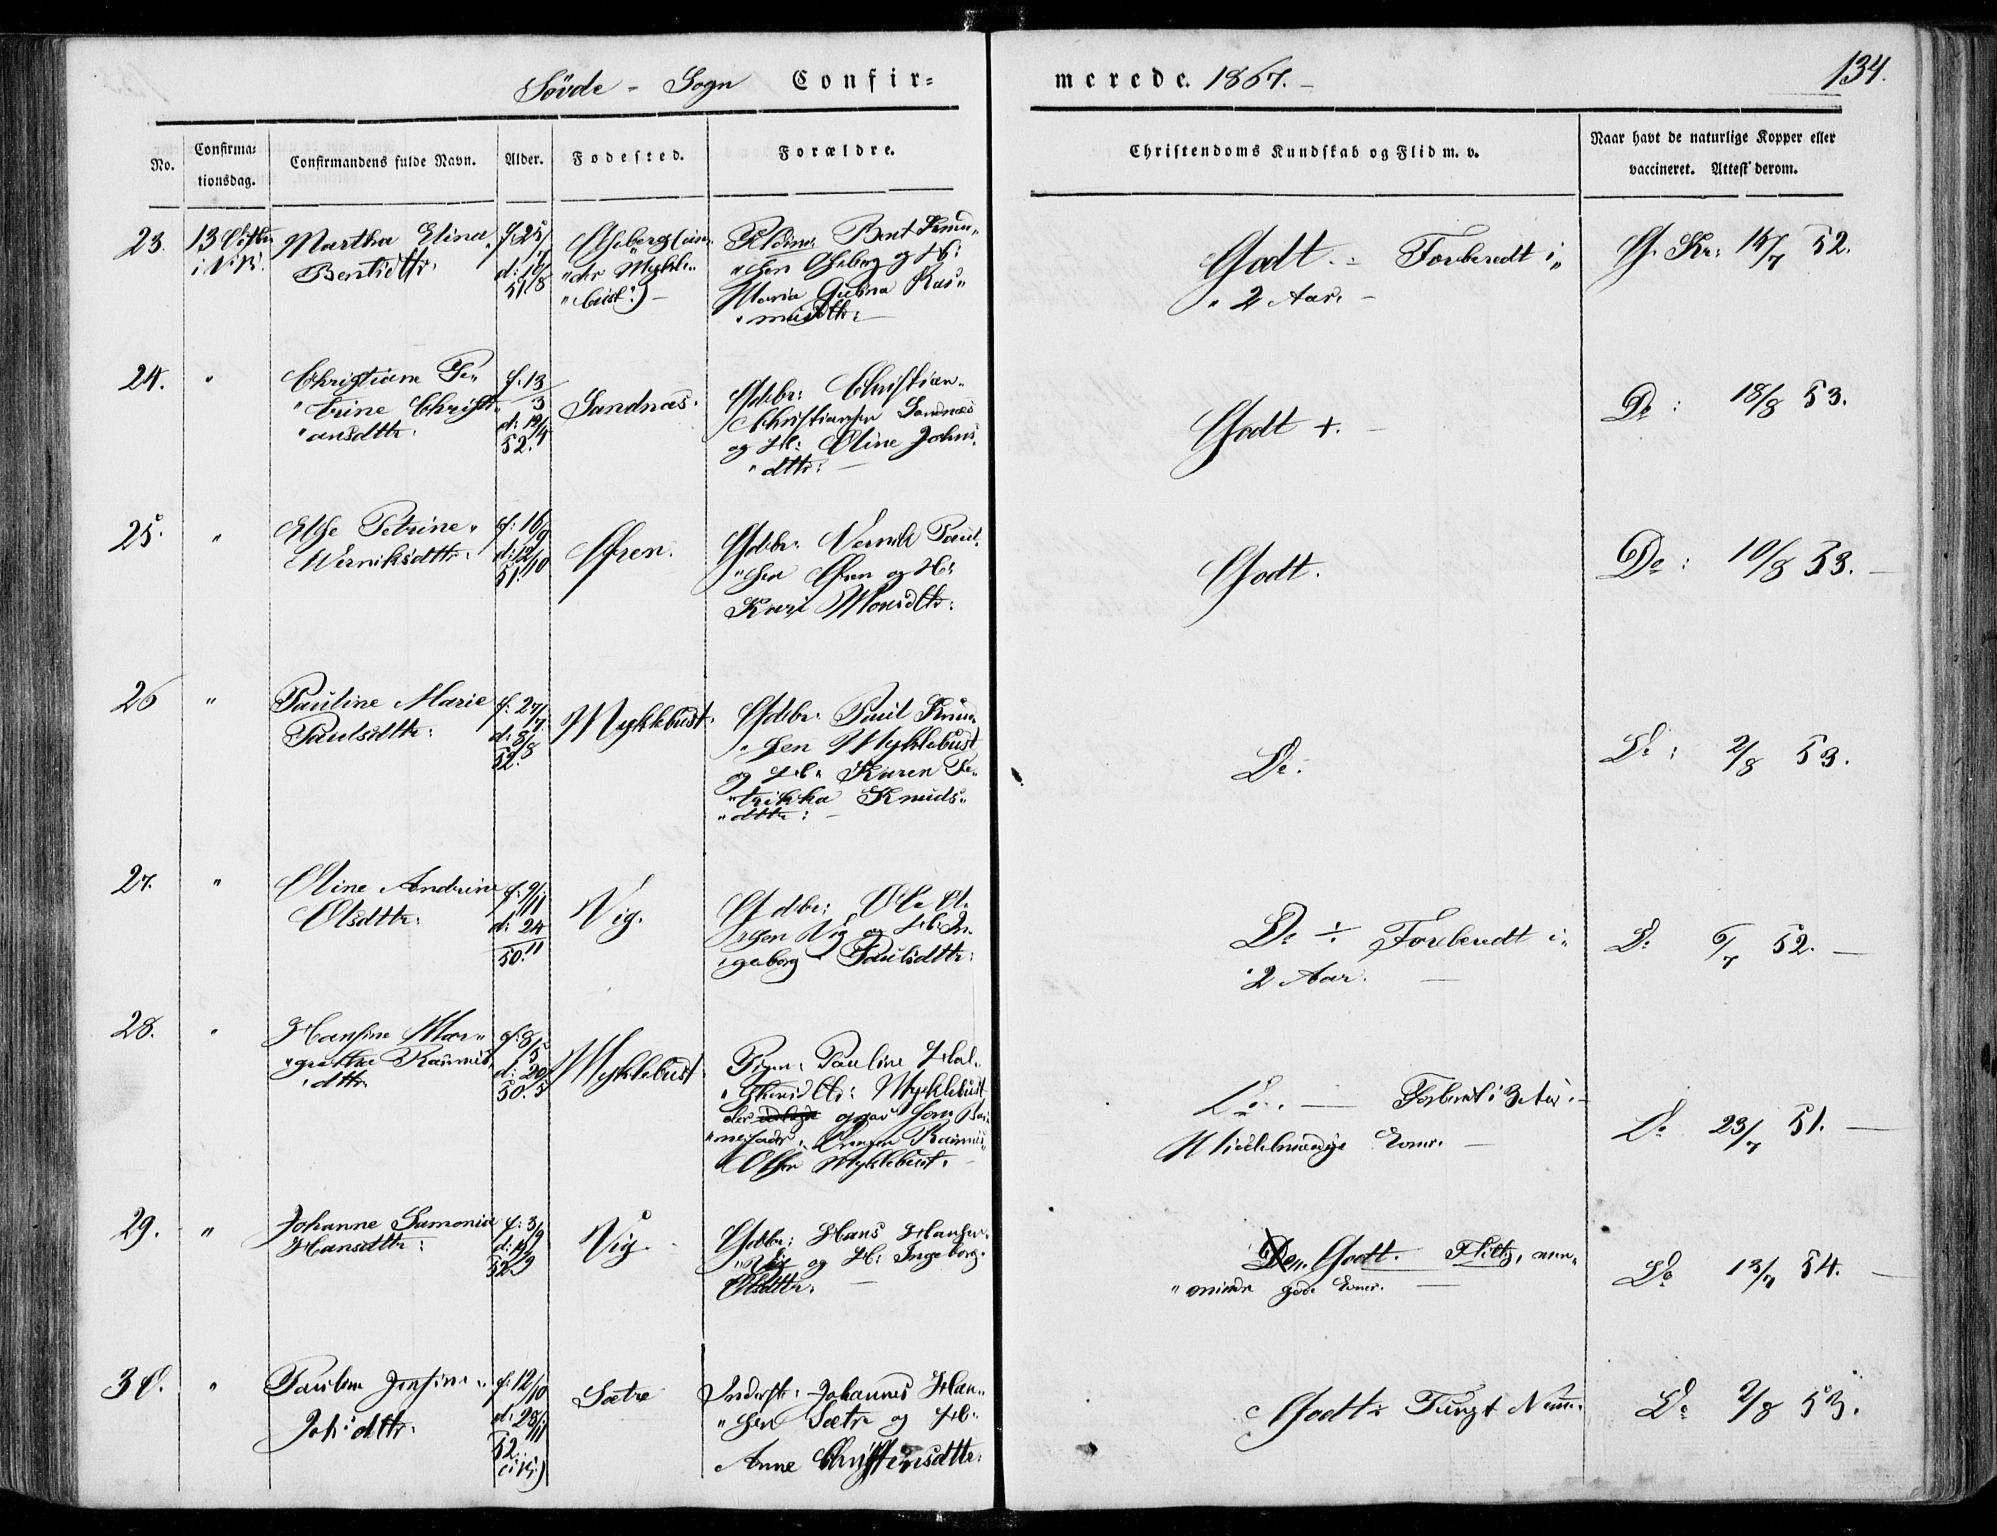 Søvde - Sogn Confir=
merede. 1867. -
134.
No.
Confirma=
tionsdag.
Confirmandens fulde Navn.
Alder.
Fødested.
Forældre.
Christendoms Kundskab og Flid m. v.
Naar havt de naturlige Kopper eller
vaccineret. Attest derom.
23.
13 Octbr
Martha Elina
Bentsdttr.
f: 25/
d: 10/8
51.
Aaberg (un
"der Mykle"
"bust:) -
Bent Knud"
"sen Aaberg og H:
Maria Gurina Ras"
"musdttr: -
Godt. - Forberedt i"
" 2 Aar. -
G. Kr: 14/7 52.
24.
"
Christiane Pe"
"trine Christi"
"ansdttr.
f: 13/3
d: 12/4
52.
Sandnæs.
Gdbr: Christian"
Christiansen Sandnæs
og H: Oline Johns"
"dttr: -
Godt +. -
Do : 18/8 53.
25.
"
Else Petrine"
Werniksdttr.
f: 16/9
d: 12/10
51.
Øren.
Gdbr: Vernik Paul"
"sen Øren og H:
Kari Monsdttr:
Godt.
Do : 10/8 53. -
26
"
Pauline Marie
Paulsdttr:
f: 27/7
d: 8/8
52.
Myklebust.
Gdbr: Paul Knud"
"sen Myklebust
og H: Karen Pe"
"trikka Knuds"
"dttr: -
Do.
Do : 2/8 53.
27.
"
Oline Andrine
Olsdttr:
f: 9/11
d: 24/11
50.
Vig.
Gdbr: Ole Ol"
"sen Vig og H: In"
"geborg Paulsdttr:
Do ÷ Forberedt i"
"2 Aar. -
Do 6/7 52. -
28.
"
Hansine Mar"
"grethe Rasmus"
"dttr
f: 8/5
d: 20/5
50.
Myklebust.
Pige: Pauline Hal"
Myklebust
opgav som Bar"
"nefader: Rasmus"
Olsen Myklebust. -
Do. - Forberedt i 3 Aar. -
Middelmaadige Evner. -
Do 23/7 51. -
29.
"
Johanne Samonia
Hansdttr:
f: 3/9
d: 19/9
52.
Vig.
Gdbr: Hans Hansen
Vig og H: Ingeborg
Olsdttr. -
Godt. - Flittig, men"
"mindre gode Evner. -
Do 13/7 54. -
30.
"
Jensine"
Joh:dttr.
f: 12/10
d: 28/11
52.
Sætre
Inderst: Johannes Han"
"sen Sætre og H:
Anne Christensdttr:
Godt÷ Tungt Nem.
Do 2/8 53.